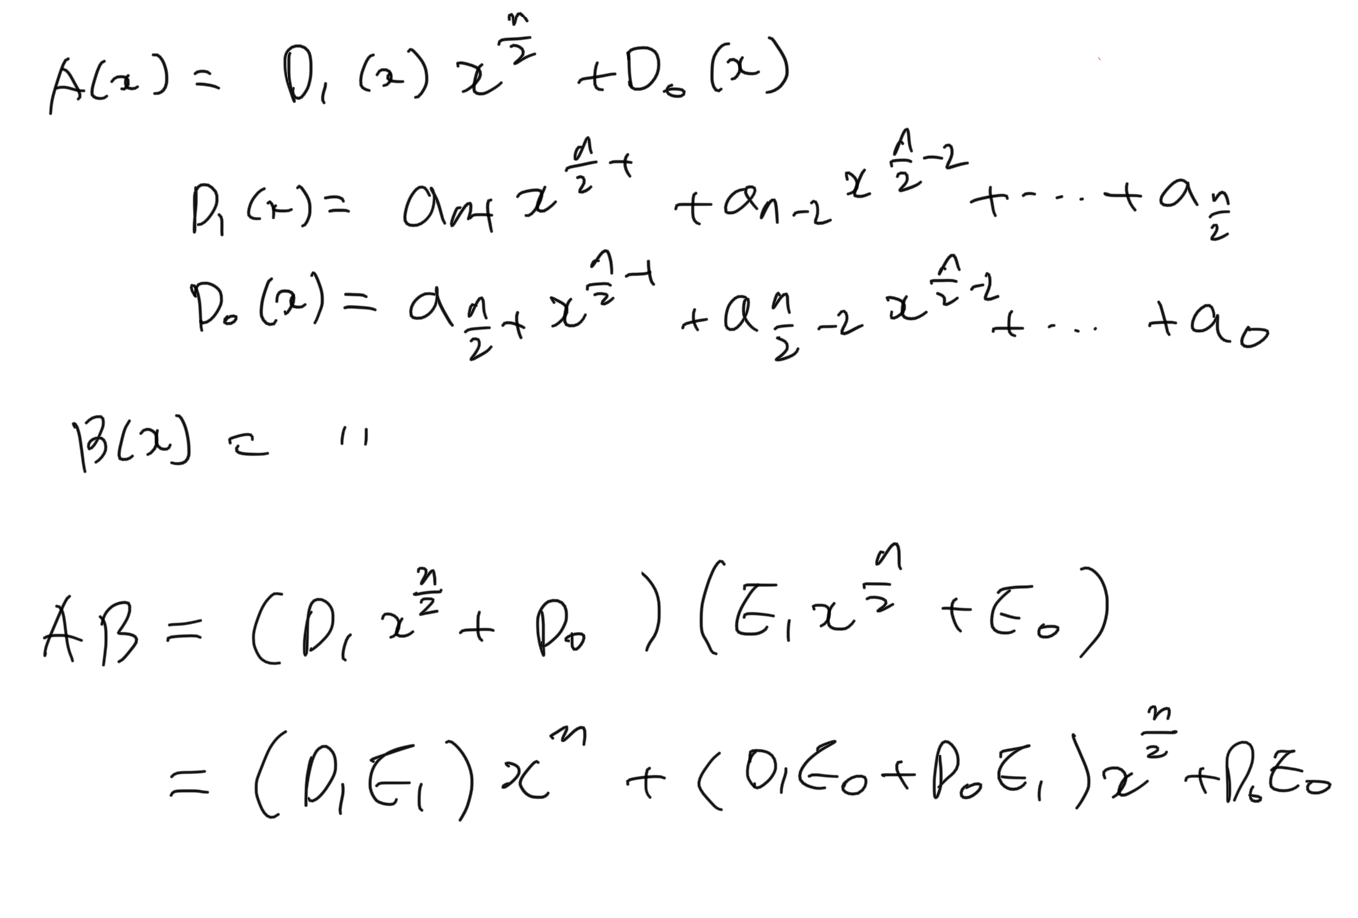 A(x) = D₁(x) x^{n/2} + D₀(x)
D₁(x) = a_{n-1} x^{n/2 -1} + a_{n-2} x^{n/2 -2} + ... + a_{n/2}
D₀(x) = a_{n/2 -1} x^{n/2 -1} + a_{n/2 -2} x^{n/2 -2} + ... + a₀
B(x) = "
AB = (D₁ x^{n/2} + D₀) (E₁ x^{n/2} + E₀)
= (D₁E₁) x^n + (D₁E₀ + D₀E₁) x^{n/2} + D₀E₀